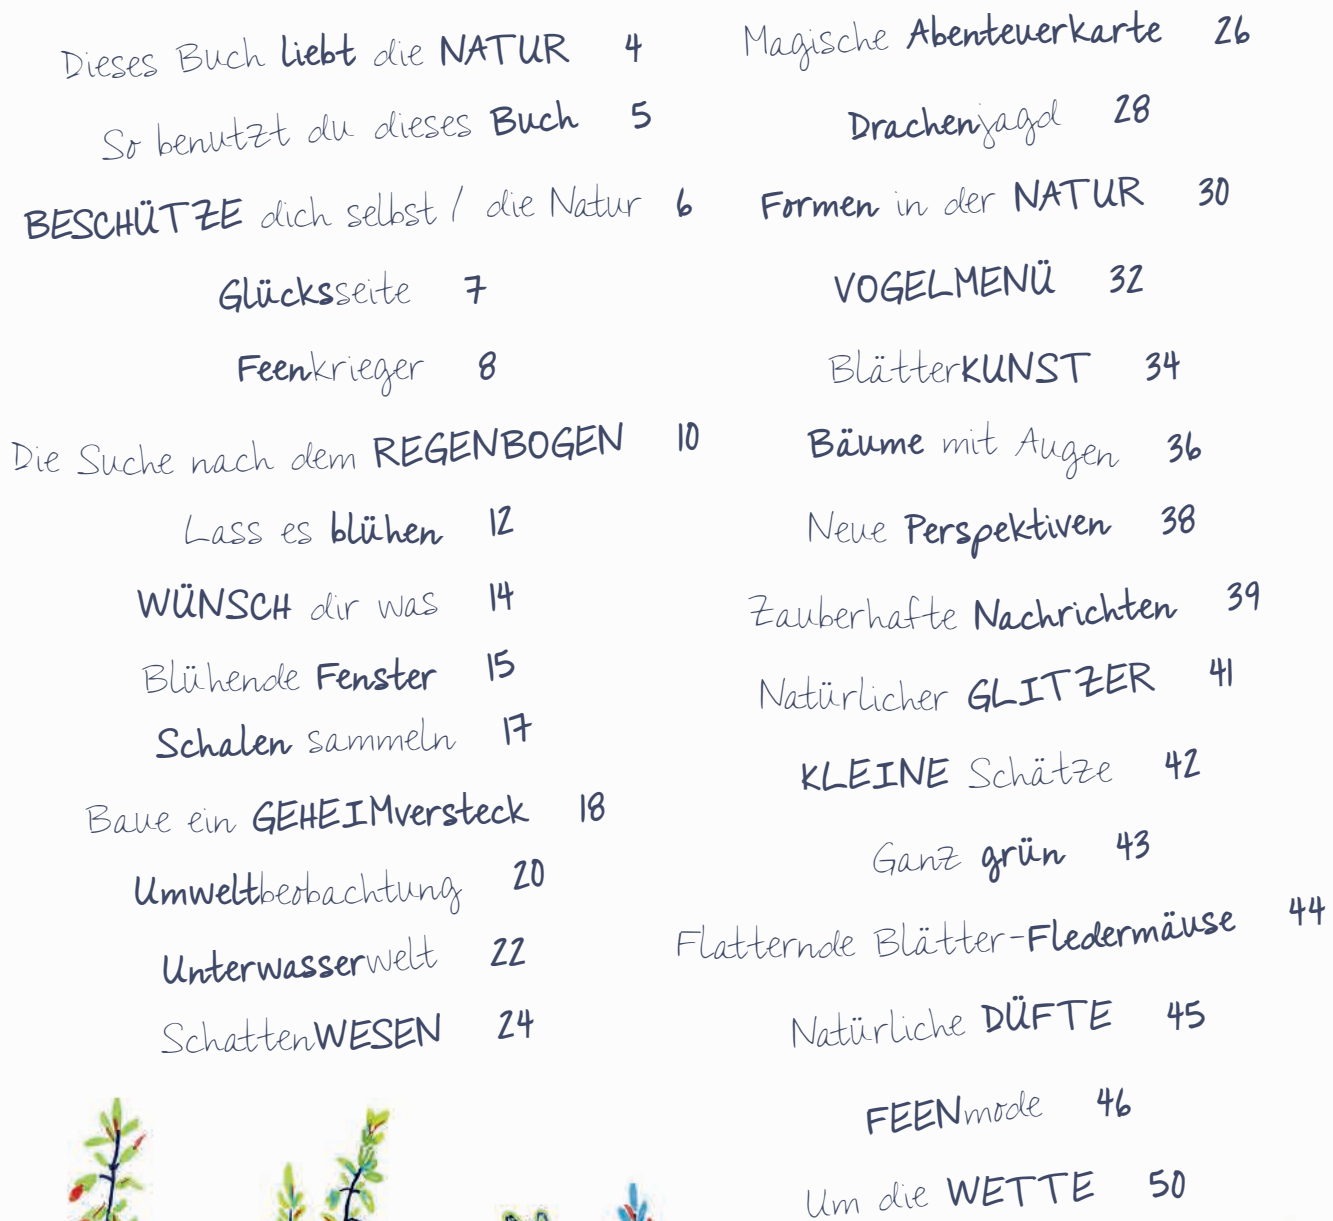 Dieses Buch liebt die NATUR 4
So benutzt du dieses Buch 5
BESCHÜTZE dich selbst / die Natur 6
Glücksseite 7
Feenkrieger 8
Die Suche nach dem REGENBOGEN 10
Lass es blühen 12
WÜNSCH dir was 14
Blühende Fenster 15
Schalen sammeln 17
Baue ein GEHEIMversteck 18
Umweltbeobachtung 20
Unterwasserwelt 22
SchattenWESEN 24
Magische Abenteuerkarte 26
Drachenjagd 28
Formen in der NATUR 30
VOGELMENÜ 32
BlätterKUNST 34
Bäume mit Augen 36
Neue Perspektiven 38
Zauberhafte Nachrichten 39
Natürlicher GLITZER 41
KLEINE Schätze 42
Ganz grün 43
Flatternde Blätter-Fledermäuse 44
Natürliche DÜFTE 45
FEENmode 46
Um die WETTE 50